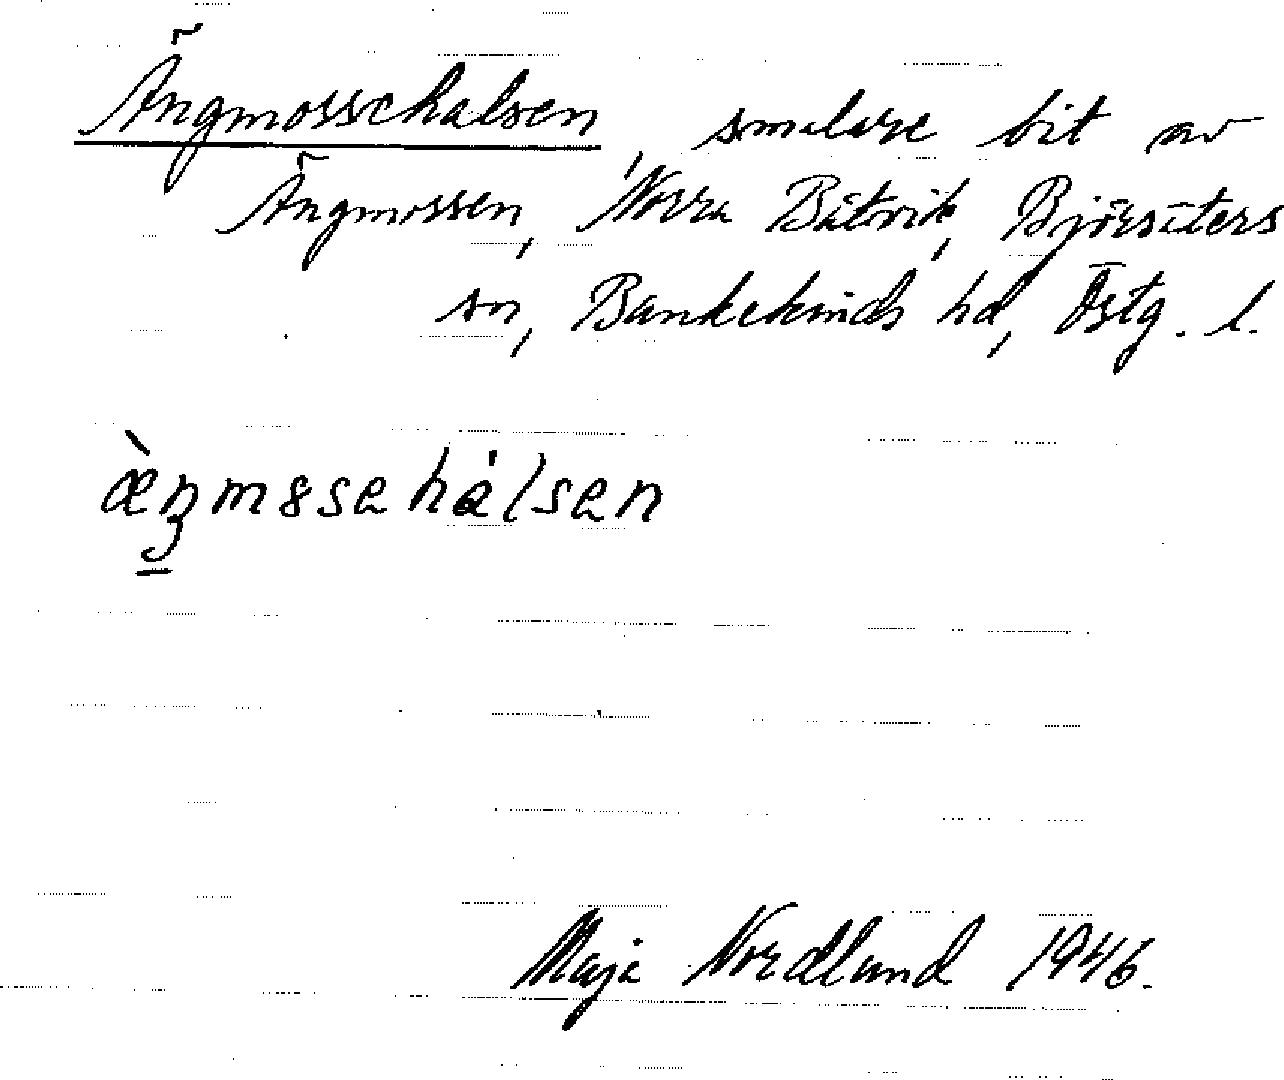 Ängmossehalsen, smalare bit av
Ängmossen, Norra Båtvik, Björsäters
sn, Bankekinds hd, Östg. l.
æ̀ŋmɞsehálsen
Maja Nordlund 1946.